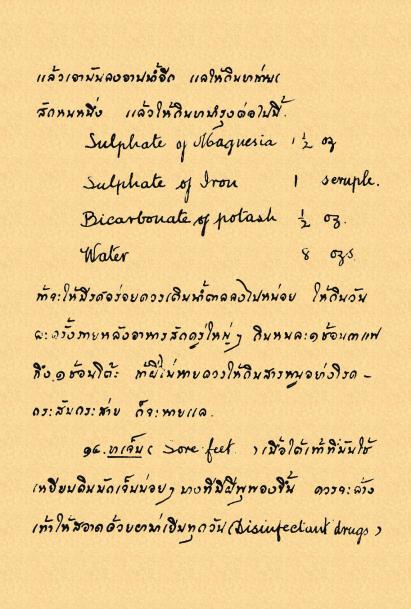 แล้วเอามันลงอาบน้ำอีก แลให้กินยาถ่าย
สักหนหนึ่ง แล้วให้กินยาบำรุงต่อไปนี้.
Sulphate of Magnesia 1 ½ oz
Sulphate of Iron 1 scruple.
Bicarbonate of potash ½ oz.
Water 8 ozs
ถ้าจะให้มีรศอร่อยควรเติมน้ำตาลลงไปหน่อย ให้กินวัน
ละครั้งภายหลังอาหารสักครู่ใหญ่ๆ กินหนละ๑ช้อนกาแฟ
ถึง๑ช้อนโต๊ะ ถ้ามิหายควรให้กินสารหนูอย่างโรค–
กระสับกระส่าย ก็จะหายแล.
๑๖. ตีนเจ็บ (Sore feet.) เนื้อใต้เท้าที่มันใช้
เหยียบดินมักเจ็บบ่อยๆ บางทีมีฝีพุพองขึ้น ควรจะล้าง
เท้าให้สอาดด้วยยาน้ำเย็นทุกวัน (Disinfectant drugs)